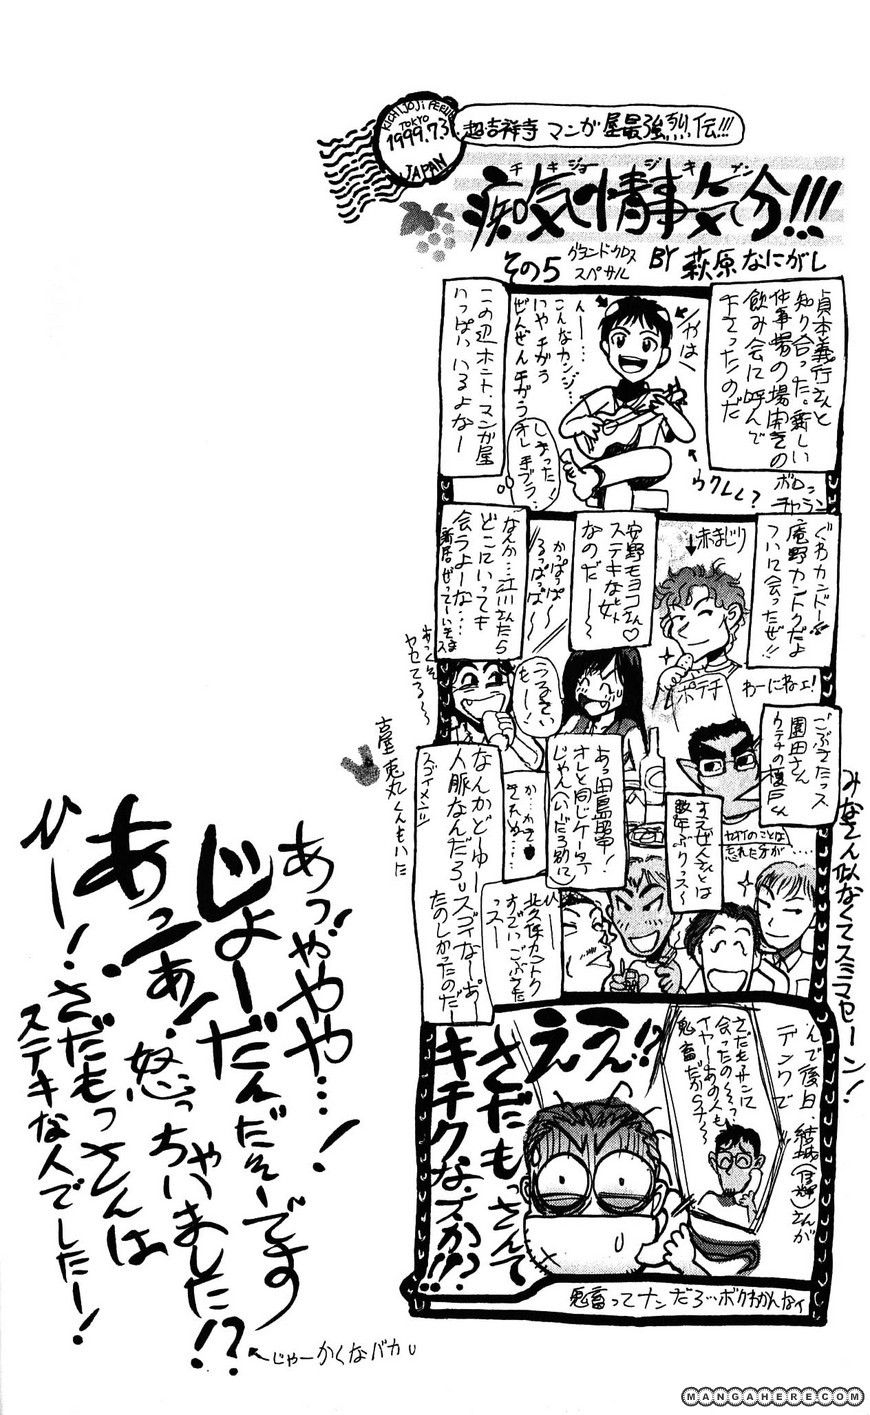 KICHIJOJI
TOKYO
1999.7.3
JAPAN
超吉祥寺 マンガ屋最強烈伝!!!
チキジョージキブン
痴気情事気分!!!
その5 グランドクロス
スペサル
BY 萩原なにがし
貞本義行さんと
知り合った。新しい
仕事場の場開きの
飲み会に呼んで
下さったのだ
がはー
んー……
こんなカンジ…
いや チガう
ぜんぜんチガう
しまった!
オレ手ブラ…
ウクレレ?
ボロン
チャラン
この辺ホント、マンガ屋
いっぱいいるよなー
ぐわカンドー
庵野カントクだよ
ついに会ったぜ!!
赤まじり
ポテチ
わーにねェ!
安野モヨコさん♡
ステキな女
なのだー
かっぱっぱ〜
るっぱっぱ〜
うるさい
もー!
なんか…江川さんたら
どこにいっても
会うよーな…
めっくそ
ヤセてる〜
古屋兎丸くんもいた
ごぶさたっス
園田さん
ウチテの榎戸くん
すえぜんさんとは
数年ぶりっス〜
忘れた方が……
あっ田島昭宇!
オレと同じケータイ
じゃんへいただ別に
か…かき
きため…
ひー
北久保カントク
すごいごぶさた
っスー
なんかどーゆー
人脈なんだろ
スゴイなーあー
たのしかったのだー
スゴイメンツ
みなさん似なくてスミマセーン!
んで後日、結城(信輝)さんが
デンワで
さだもサンに
会ったの〜そっ
イヤーあの人も
鬼畜だからサー〜
ええ!?
さだもっさんて
キチクなズか!!?
鬼畜ってナンだろ…ボクわかんなィ
あっややや…!
じょーだんだそーです
あっあ!怒っちゃいました!?
じゃーかくなバカ
ひー!さだもっさんは
ステキな人でしたー!
MANGAHERE.COM